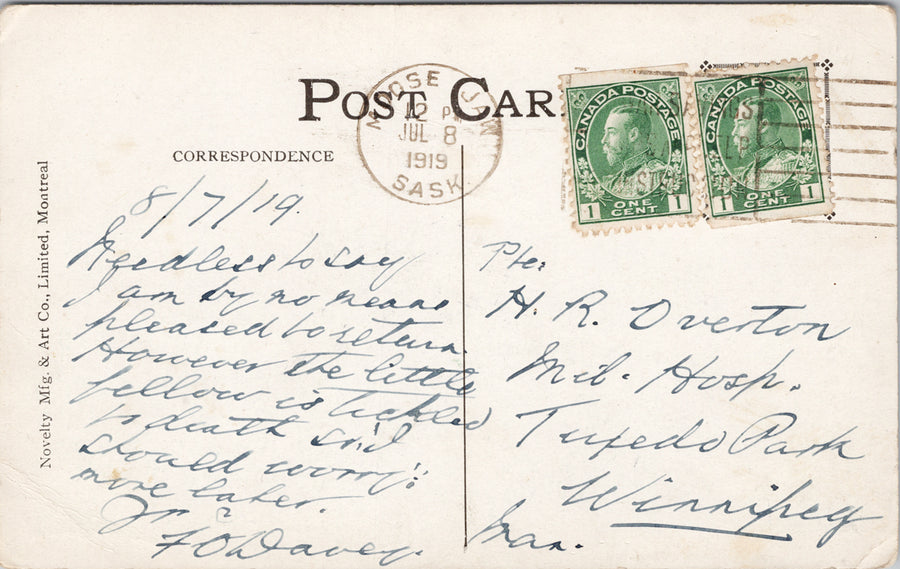 POST CAR
CORRESPONDENCE
MOOSE JAW
12 PM
JUL 8
1919
SASK
CANADA POSTAGE
1 ONE CENT 1
CANADA POSTAGE
1 ONE CENT 1
Novelty Mfg. & Art Co., Limited, Montreal
8/7/19.
Needless to say
I am by no means
pleased to return.
However the little
fellow is tickled
to death so I
should worry!!
more later.
F O Davey.
Pte.
H. R. Overton
Mil. Hosp.
Tuxedo Park
Winnipeg
Man.